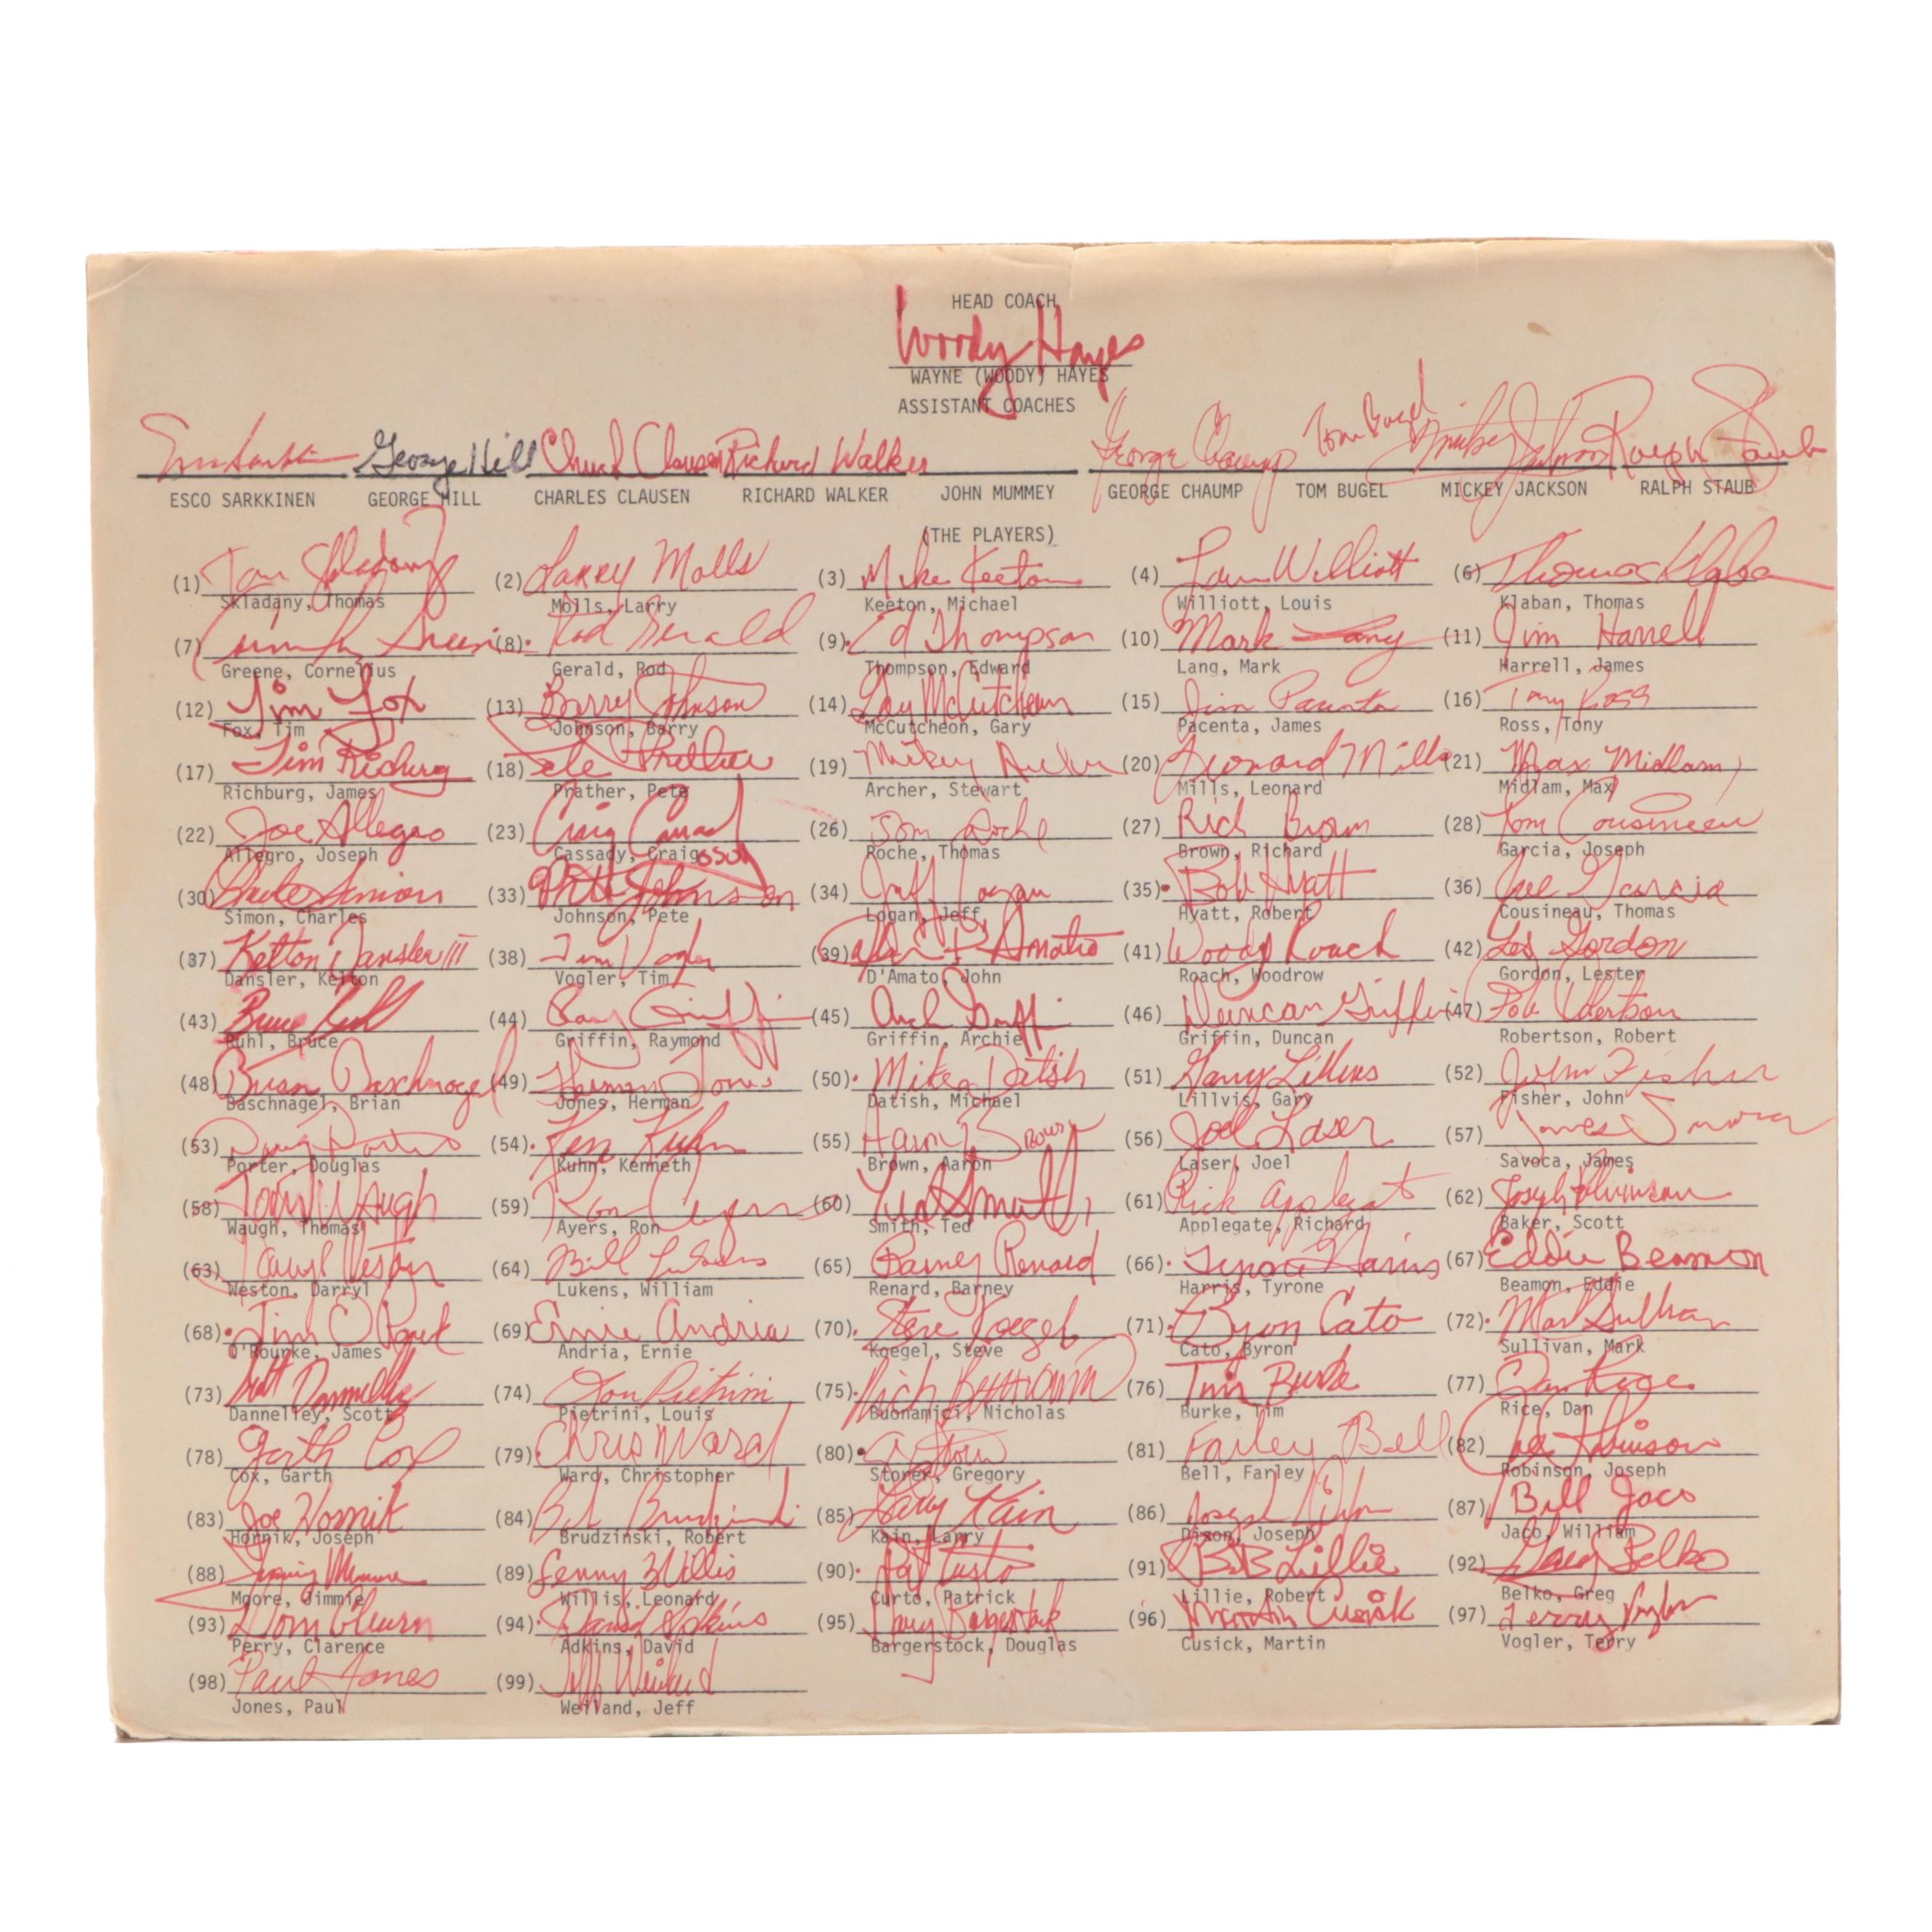 HEAD COACH
Woody Hayes
WAYNE (WOODY) HAYES
ASSISTANT COACHES
George Hill Chuck Clausen Richard Walker George Chaump Tom Bugel Mickey Jackson Ralph Staub
ESCO SARKKINEN GEORGE HILL CHARLES CLAUSEN RICHARD WALKER JOHN MUMMEY GEORGE CHAUMP TOM BUGEL MICKEY JACKSON RALPH STAUB
(THE PLAYERS)
(1) Tom Skladany (2) Larry Molls (3) Mike Keeton (4) Lou Williott (6) Thomas Klaban
Skladany, Thomas Molls, Larry Keeton, Michael Williott, Louis Klaban, Thomas
(7) Greene (8). Rod Gerald (9). Ed Thompson (10) Mark Lang (11) Jim Harrell
Greene, Cornelius Gerald, Rod Thompson, Edward Lang, Mark Harrell, James
(12) Tim Fox (13) Barry Johnson (14) Gary McCutcheon (15) Jim Pacenta (16) Tony Ross
Fox, Tim Johnson, Barry McCutcheon, Gary Pacenta, James Ross, Tony
(17) Jim Richburg (18) Pete Prather (19) Mikey Archer (20) Leonard Mills (21) Max Midlam
Richburg, James Prather, Pete Archer, Stewart Mills, Leonard Midlam, Max
(22) Joe Allegro (23) Craig Cassady (26) Tom Roche (27) Rich Brown (28) Tom Cousineau
Allegro, Joseph Cassady, Craig Roche, Thomas Brown, Richard Garcia, Joseph
(30) Simon (33) Pete Johnson (34) Jeff Logan (35). Bob Hyatt (36) Joe Garcia
Simon, Charles Johnson, Pete Logan, Jeff Hyatt, Robert Cousineau, Thomas
(37) Kelton Dansler III (38) Tim Vogler (39) D'Amato (41) Woody Roach (42) Les Gordon
Dansler, Kelton Vogler, Tim D'Amato, John Roach, Woodrow Gordon, Lester
(43) Bruce Ruhl (44) Ray Griffin (45) Arch Griffin (46) Duncan Griffin (47) Bob Robertson
Ruhl, Bruce Griffin, Raymond Griffin, Archie Griffin, Duncan Robertson, Robert
(48) Brian Baschnagel (49) Herman Jones (50). Mike Datish (51) Gary Lillvis (52) John Fisher
Baschnagel, Brian Jones, Herman Datish, Michael Lillvis, Gary Fisher, John
(53) Doug Porter (54). Ken Kuhn (55) Aaron Brown (56) Joel Laser (57) James Savoca
Porter, Douglas Kuhn, Kenneth Brown, Aaron Laser, Joel Savoca, James
(58) Tom Waugh (59) Ron Ayers (60) Ted Smith (61) Rick Applegate (62) Joseph
Waugh, Thomas Ayers, Ron Smith, Ted Applegate, Richard Baker, Scott
(63) Darryl Weston (64) Bill Lukens (65) Barney Renard (66). Tyrone Harris (67) Eddie Beamon
Weston, Darryl Lukens, William Renard, Barney Harris, Tyrone Beamon, Eddie
(68). Jim O'Rourke (69) Ernie Andria (70). Steve Koegel (71). Byron Cato (72). Mark Sullivan
O'Rourke, James Andria, Ernie Koegel, Steve Cato, Byron Sullivan, Mark
(73) Scott Dannelley (74) Lou Pietrini (75). Nick Buonamici (76) Tim Burke (77) Dan Rice
Dannelley, Scott Pietrini, Louis Buonamici, Nicholas Burke, Tim Rice, Dan
(78) Garth Cox (79). Chris Ward (80). Storer (81) Farley Bell (82) Joe Robinson
Cox, Garth Ward, Christopher Storer, Gregory Bell, Farley Robinson, Joseph
(83) Joe Hornik (84) Bob Brudzinski (85) Larry Kain (86) Joseph Dixon (87) Bill Jaco
Hornik, Joseph Brudzinski, Robert Kain, Larry Dixon, Joseph Jaco, William
(88) Jimmy Moore (89) Lenny Willis (90). Pat Curto (91) BB Lillie (92) Greg Belko
Moore, Jimmie Willis, Leonard Curto, Patrick Lillie, Robert Belko, Greg
(93) Tom (94). David Adkins (95) Doug Bargerstock (96) Martin Cusick (97) Terry Vogler
Perry, Clarence Adkins, David Bargerstock, Douglas Cusick, Martin Vogler, Terry
(98) Paul Jones (99) Jeff Weiland
Jones, Paul Weiland, Jeff